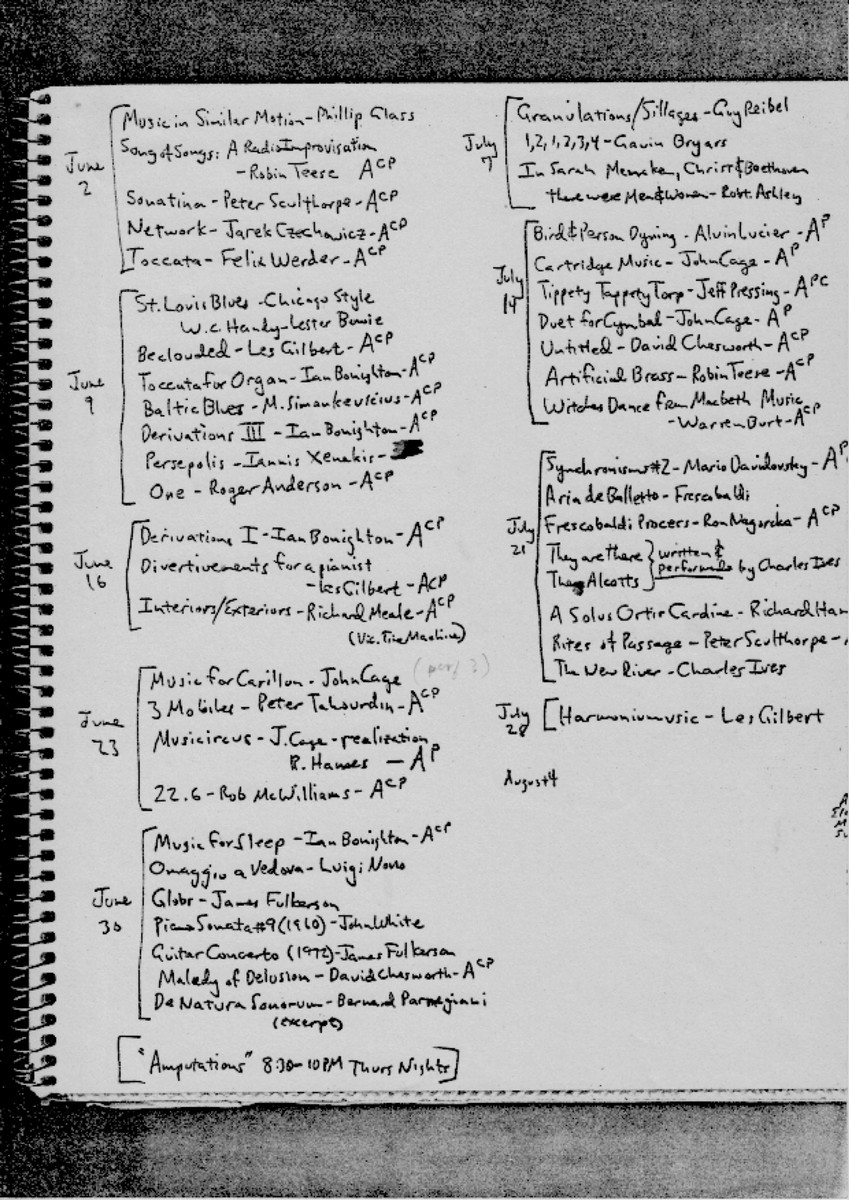 June 2
Music in Similar Motion - Phillip Glass
Song of Songs: A Radio Improvisation
- Robin Teese ACP
Sonatina - Peter Sculthorpe - ACP
Network - Jarek Czechowicz - ACP
Toccata - Felix Werder - ACP
June 9
St. Louis Blues - Chicago Style
W.C. Handy - Lester Bowie
Beclouded - Les Gilbert - ACP
Toccata for Organ - Ian Bonighton - ACP
Baltic Blues - M. Simonkevicius - ACP
Derivations III - Ian Bonighton - ACP
Persepolis - Iannis Xenakis -
One - Roger Anderson - ACP
June 16
Derivations I - Ian Bonighton - ACP
Divertivements for a pianist
- Les Gilbert - ACP
Interiors/Exteriors - Richard Meale - ACP
(Viz. Fire Machine)
June 23
Music for Carillon - John Cage (perf?)
3 Mobiles - Peter Tahourdin - ACP
Musicircus - J. Cage - realization
R. Hames - AP
22.6 - Rob McWilliams - ACP
June 30
Music for Sleep - Ian Bonighton - ACP
Omaggio a Vedova - Luigi Nono
Globs - James Fulkerson
Piano Sonata #9 (1960) - John White
Guitar Concerto (1972) - James Fulkerson
Malady of Delusion - David Chesworth - ACP
De Natura Sonorum - Bernard Parmegiani
(excerpt)
["Amputations" 8:30-10PM Thurs Nights]
July 7
Granulations/Sillages - Guy Reibel
1,2,1,2,3,4 - Gavin Bryars
In Sarah Mencken, Christ & Beethoven
there were Men & Women - Robt. Ashley
July 14
Bird & Person Dyning - Alvin Lucier - AP
Cartridge Music - John Cage - AP
Tippety Tappety Torp - Jeff Pressing - APC
Duet for Cymbal - John Cage - AP
Untitled - David Chesworth - ACP
Artificial Brass - Robin Teese - ACP
Witches Dance from Macbeth Music
- Warren Burt - ACP
July 21
Synchronisms #2 - Mario Davidovsky - AP
Aria de Balletto - Frescobaldi
Frescobaldi Process - Ron Nagorcka - ACP
They are there } written &
The Alcotts } performed by Charles Ives
A Solus Ortir Cardine - Richard Ham
Rites of Passage - Peter Sculthorpe -
The New River - Charles Ives
July 28
[Harmoniumusic - Les Gilbert
August 4